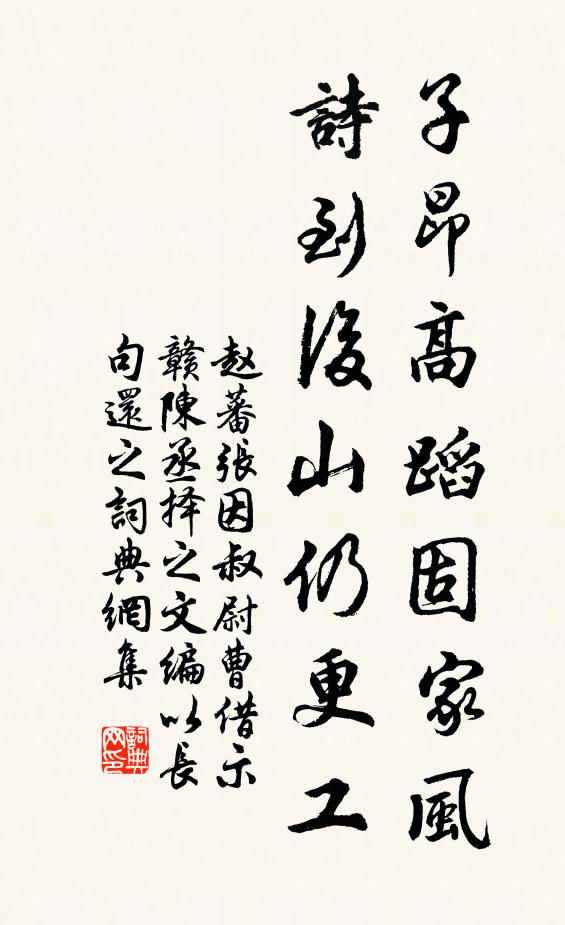 子昂高蹈固家風
詩到後山仍更工
赵蕃張因叔尉曹借示
贛陳丞择之文編以長
句還之詞典網集
詞典
网印